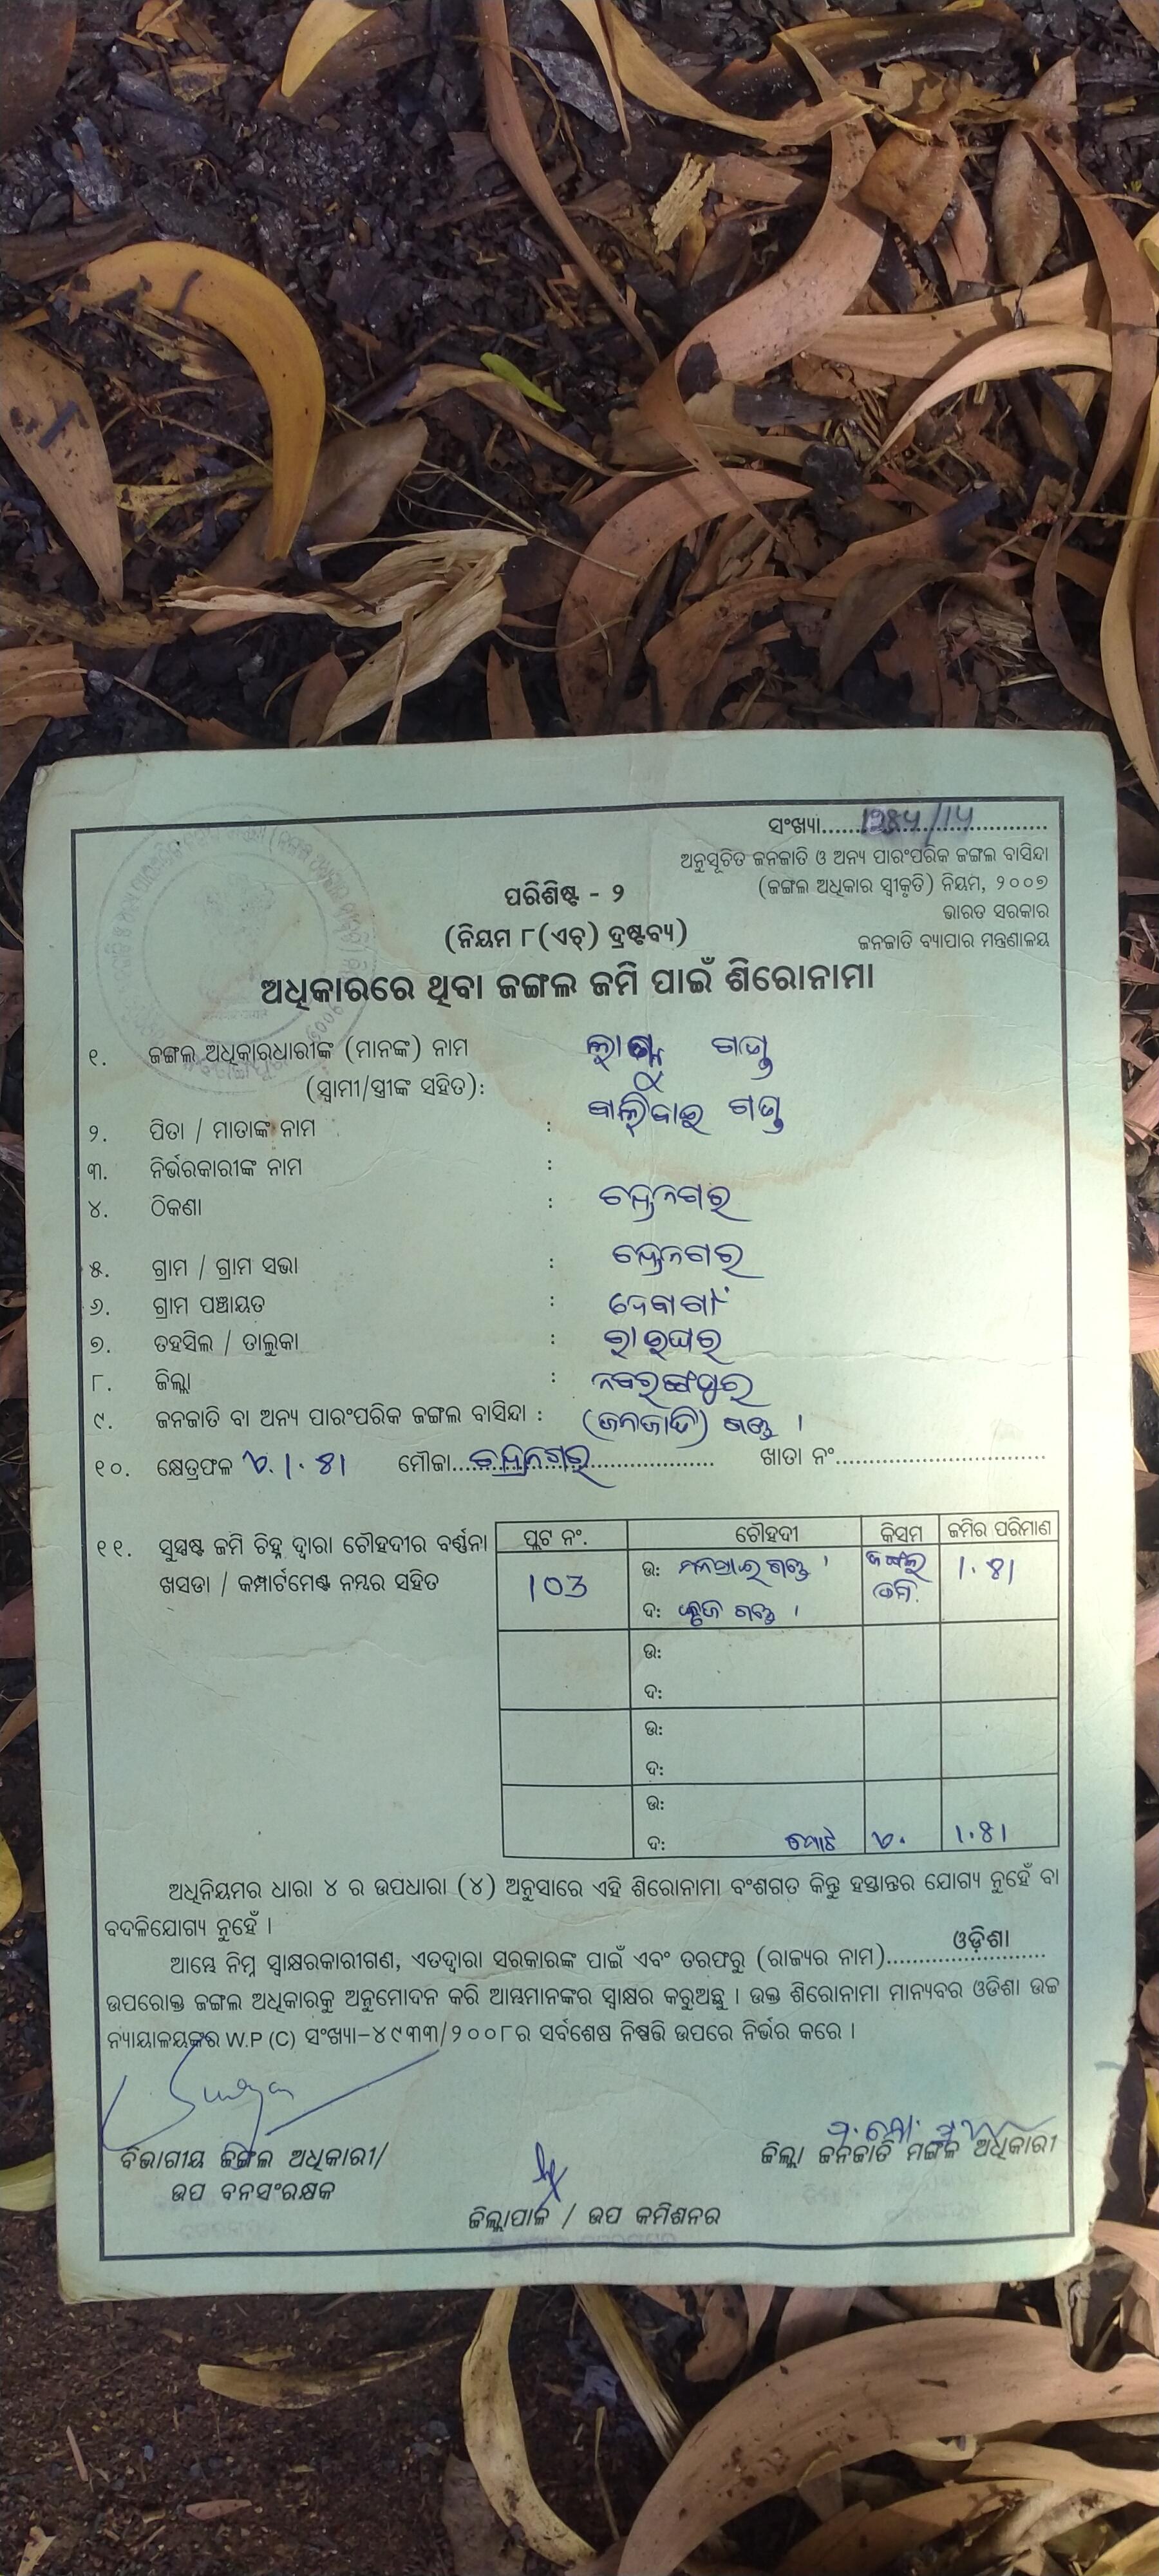 ସଂଖ୍ୟା..............................
ଅନୁସୂଚିତ ଜନଜାତି ଓ ଅନ୍ୟ ପାରଂପରିକ ଜଙ୍ଗଲ ବାସିନ୍ଦା
(ଜଙ୍ଗଲ ଅଧିକାର ସ୍ୱୀକୃତି) ନିୟମ, ୨୦୦୭
ଭାରତ ସରକାର
ଜନଜାତି ବ୍ୟାପାର ମନ୍ତ୍ରଣାଳୟ
ପରିଶିଷ୍ଟ - ୨
(ନିୟମ ୮(ଏଚ୍) ଦ୍ରଷ୍ଟବ୍ୟ)
ଅଧିକାରରେ ଥିବା ଜଙ୍ଗଲ ଜମି ପାଇଁ ଶିରୋନାମା
୧. ଜଙ୍ଗଲ ଅଧିକାରଧାରୀଙ୍କ (ମାନଙ୍କ) ନାମ
(ସ୍ୱାମୀ/ସ୍ତ୍ରୀଙ୍କ ସହିତ):
୨. ପିତା / ମାତାଙ୍କ ନାମ :
୩. ନିର୍ଭରକାରୀଙ୍କ ନାମ :
୪. ଠିକଣା : ଚନ୍ଦ୍ରନଗର
୫. ଗ୍ରାମ / ଗ୍ରାମ ସଭା : ଚନ୍ଦ୍ରନଗର
୬. ଗ୍ରାମ ପଞ୍ଚାୟତ :
୭. ତହସିଲ / ତାଲୁକା : ରାଇଘର
୮. ଜିଲ୍ଲା : ନବରଙ୍ଗପୁର
୯. ଜନଜାତି ବା ଅନ୍ୟ ପାରଂପରିକ ଜଙ୍ଗଲ ବାସିନ୍ଦା : (ଜନଜାତି) ଗଣ୍ଡ ।
୧୦. କ୍ଷେତ୍ରଫଳ ଏ. 1.81 ମୌଜା....ଚନ୍ଦ୍ରନଗର.... ଖାତା ନଂ..............................
୧୧. ସୁସ୍ପଷ୍ଟ ଜମି ଚିହ୍ନ ଦ୍ୱାରା ଚୌହଦୀର ବର୍ଣ୍ଣନା
ଖସଡା / କମ୍ପାର୍ଟମେଣ୍ଟ ନମ୍ବର ସହିତ
ପ୍ଲଟ ନଂ. ଚୌହଦୀ କିସମ ଜମିର ପରିମାଣ
103 ଉ: ଗଣ୍ଡ । ଜଙ୍ଗଲ 1.81
ଦ: ଗଣ୍ଡ । ଜମି
ଉ:
ଦ:
ଉ:
ଦ:
ଉ:
ଦ: ମୋଟ ଏ. 1.81
ଅଧିନିୟମର ଧାରା ୪ ର ଉପଧାରା (୪) ଅନୁସାରେ ଏହି ଶିରୋନାମା ବଂଶଗତ କିନ୍ତୁ ହସ୍ତାନ୍ତର ଯୋଗ୍ୟ ନୁହେଁ ବା
ବଦଳିଯୋଗ୍ୟ ନୁହେଁ ।
ଆମ୍ଭେ ନିମ୍ନ ସ୍ୱାକ୍ଷରକାରୀଗଣ, ଏତଦ୍ୱାରା ସରକାରଙ୍କ ପାଇଁ ଏବଂ ତରଫରୁ (ରାଜ୍ୟର ନାମ)......ଓଡ଼ିଶା......
ଉପରୋକ୍ତ ଜଙ୍ଗଲ ଅଧିକାରକୁ ଅନୁମୋଦନ କରି ଆମ୍ଭମାନଙ୍କର ସ୍ୱାକ୍ଷର କରୁଅଛୁ । ଉକ୍ତ ଶିରୋନାମା ମାନ୍ୟବର ଓଡିଶା ଉଚ୍ଚ
ନ୍ୟାୟାଳୟଙ୍କର W.P (C) ସଂଖ୍ୟା-୪୯୩୩/୨୦୦୮ର ସର୍ବଶେଷ ନିଷ୍ପତ୍ତି ଉପରେ ନିର୍ଭର କରେ ।
ବିଭାଗୀୟ ଜଙ୍ଗଲ ଅଧିକାରୀ/
ଉପ ବନସଂରକ୍ଷକ
ଜିଲ୍ଲା ଜନଜାତି ମଙ୍ଗଳ ଅଧିକାରୀ
ଜିଲ୍ଲାପାଳ / ଉପ କମିଶନର